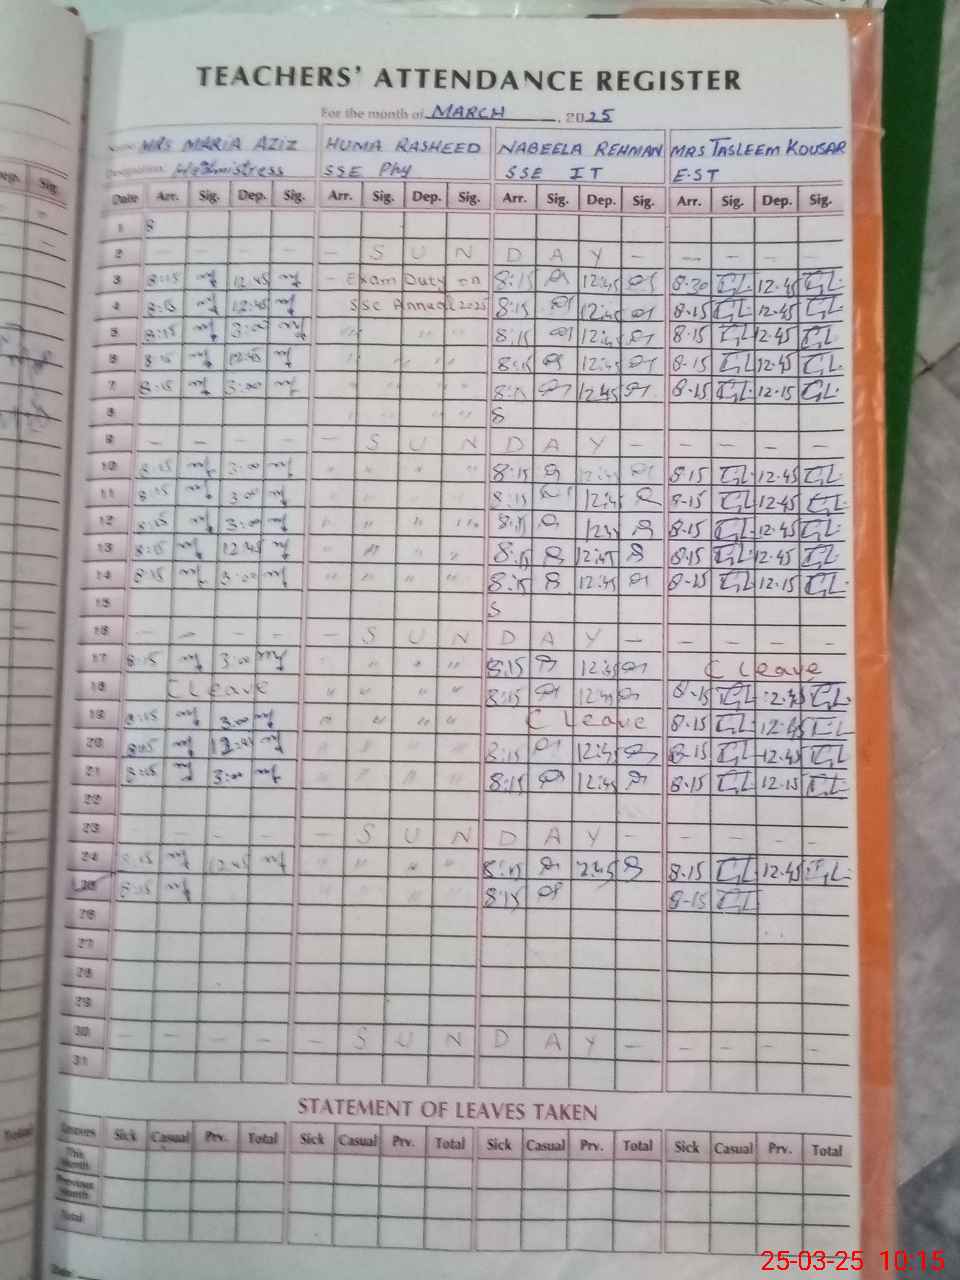 TEACHERS' ATTENDANCE REGISTER
For the month of MARCH, 2025
MRS MARIA AZIZ HUMA RASHEED NABEELA REHMAN MRS TASLEEM KOUSAR
Headmistress SSE Phy SSE IT E.S.T
Date Arr. Sig. Dep. Sig. Arr. Sig. Dep. Sig. Arr. Sig. Dep. Sig. Arr. Sig. Dep. Sig.
1 8
2 — — — — — S U N D A Y — — — — —
3 8:15 12:45 - Exam Duty on 8:15 12:45 8-20 12.45
4 8:15 12:45 SSC Annual 2025 8:15 12:45 8-15 12.45
5 8:15 3:00 " " " 8:15 12:45 8-15 12.45
6 8:15 12:45 " " " 8:15 12:45 8-15 12.45
7 8:15 3:00 " " " 8:15 12:45 8-15 12-15
8 " " " S
9 — — — — — S U N D A Y — — — — —
10 8:15 3:00 " " " " 8:15 12:45 8-15 12.45
11 8:15 3:00 8:15 12:45 8-15 12.45
12 8:15 3:00 " " " " 8:15 8-15 12.45
13 8:15 12:45 " " " " 8:15 12:45 8-15 12.45
14 8:15 3:00 " " " " 8:15 12:45 8-15 12.15
15 S
16 — — — — — S U N D A Y — — — — —
17 8:15 3:00 " " " " 8:15 12:45 C leave
18 C leave " " " " 8:15 12:45 8-15
19 8:15 3:00 " " " " C leave 8-15 12-45
20 8:15 12:45 " " " " 8:15 12:45 8-15 12.45
21 8:15 3:00 " " " " 8:15 12:45 8-15 12.15
22
23 — — — — — S U N D A Y — — — — —
24 8:15 12:45 " " " " 8:15 8-15 12.45
25 8:15 8:15 8-15
26
27
28
29
30 — — — — — S U N D A Y — — — — —
31
STATEMENT OF LEAVES TAKEN
Leaves Sick Casual Prv. Total Sick Casual Prv. Total Sick Casual Prv. Total Sick Casual Prv. Total
This Month
Previous Month
Total
25-03-25 10:15